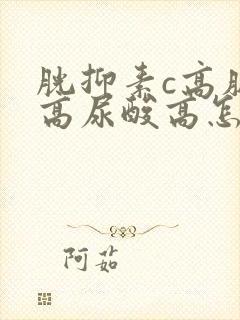 胱抑素c高肌
高尿酸高怎
阿茹